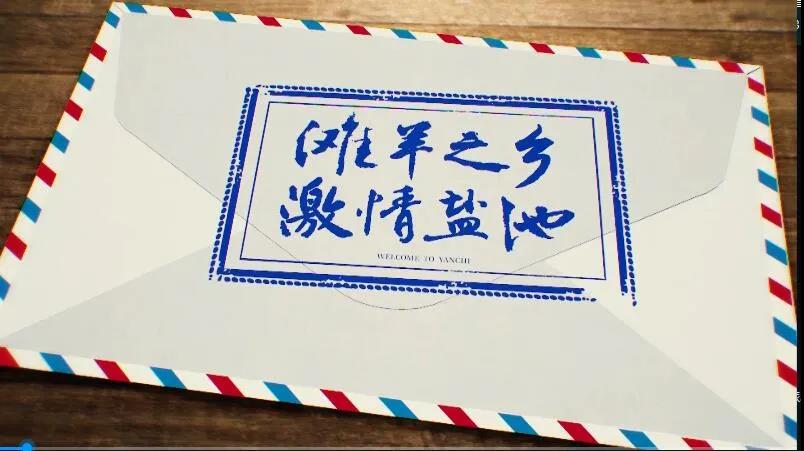 滩羊之乡
激情盐池
WELCOME TO YANCHI